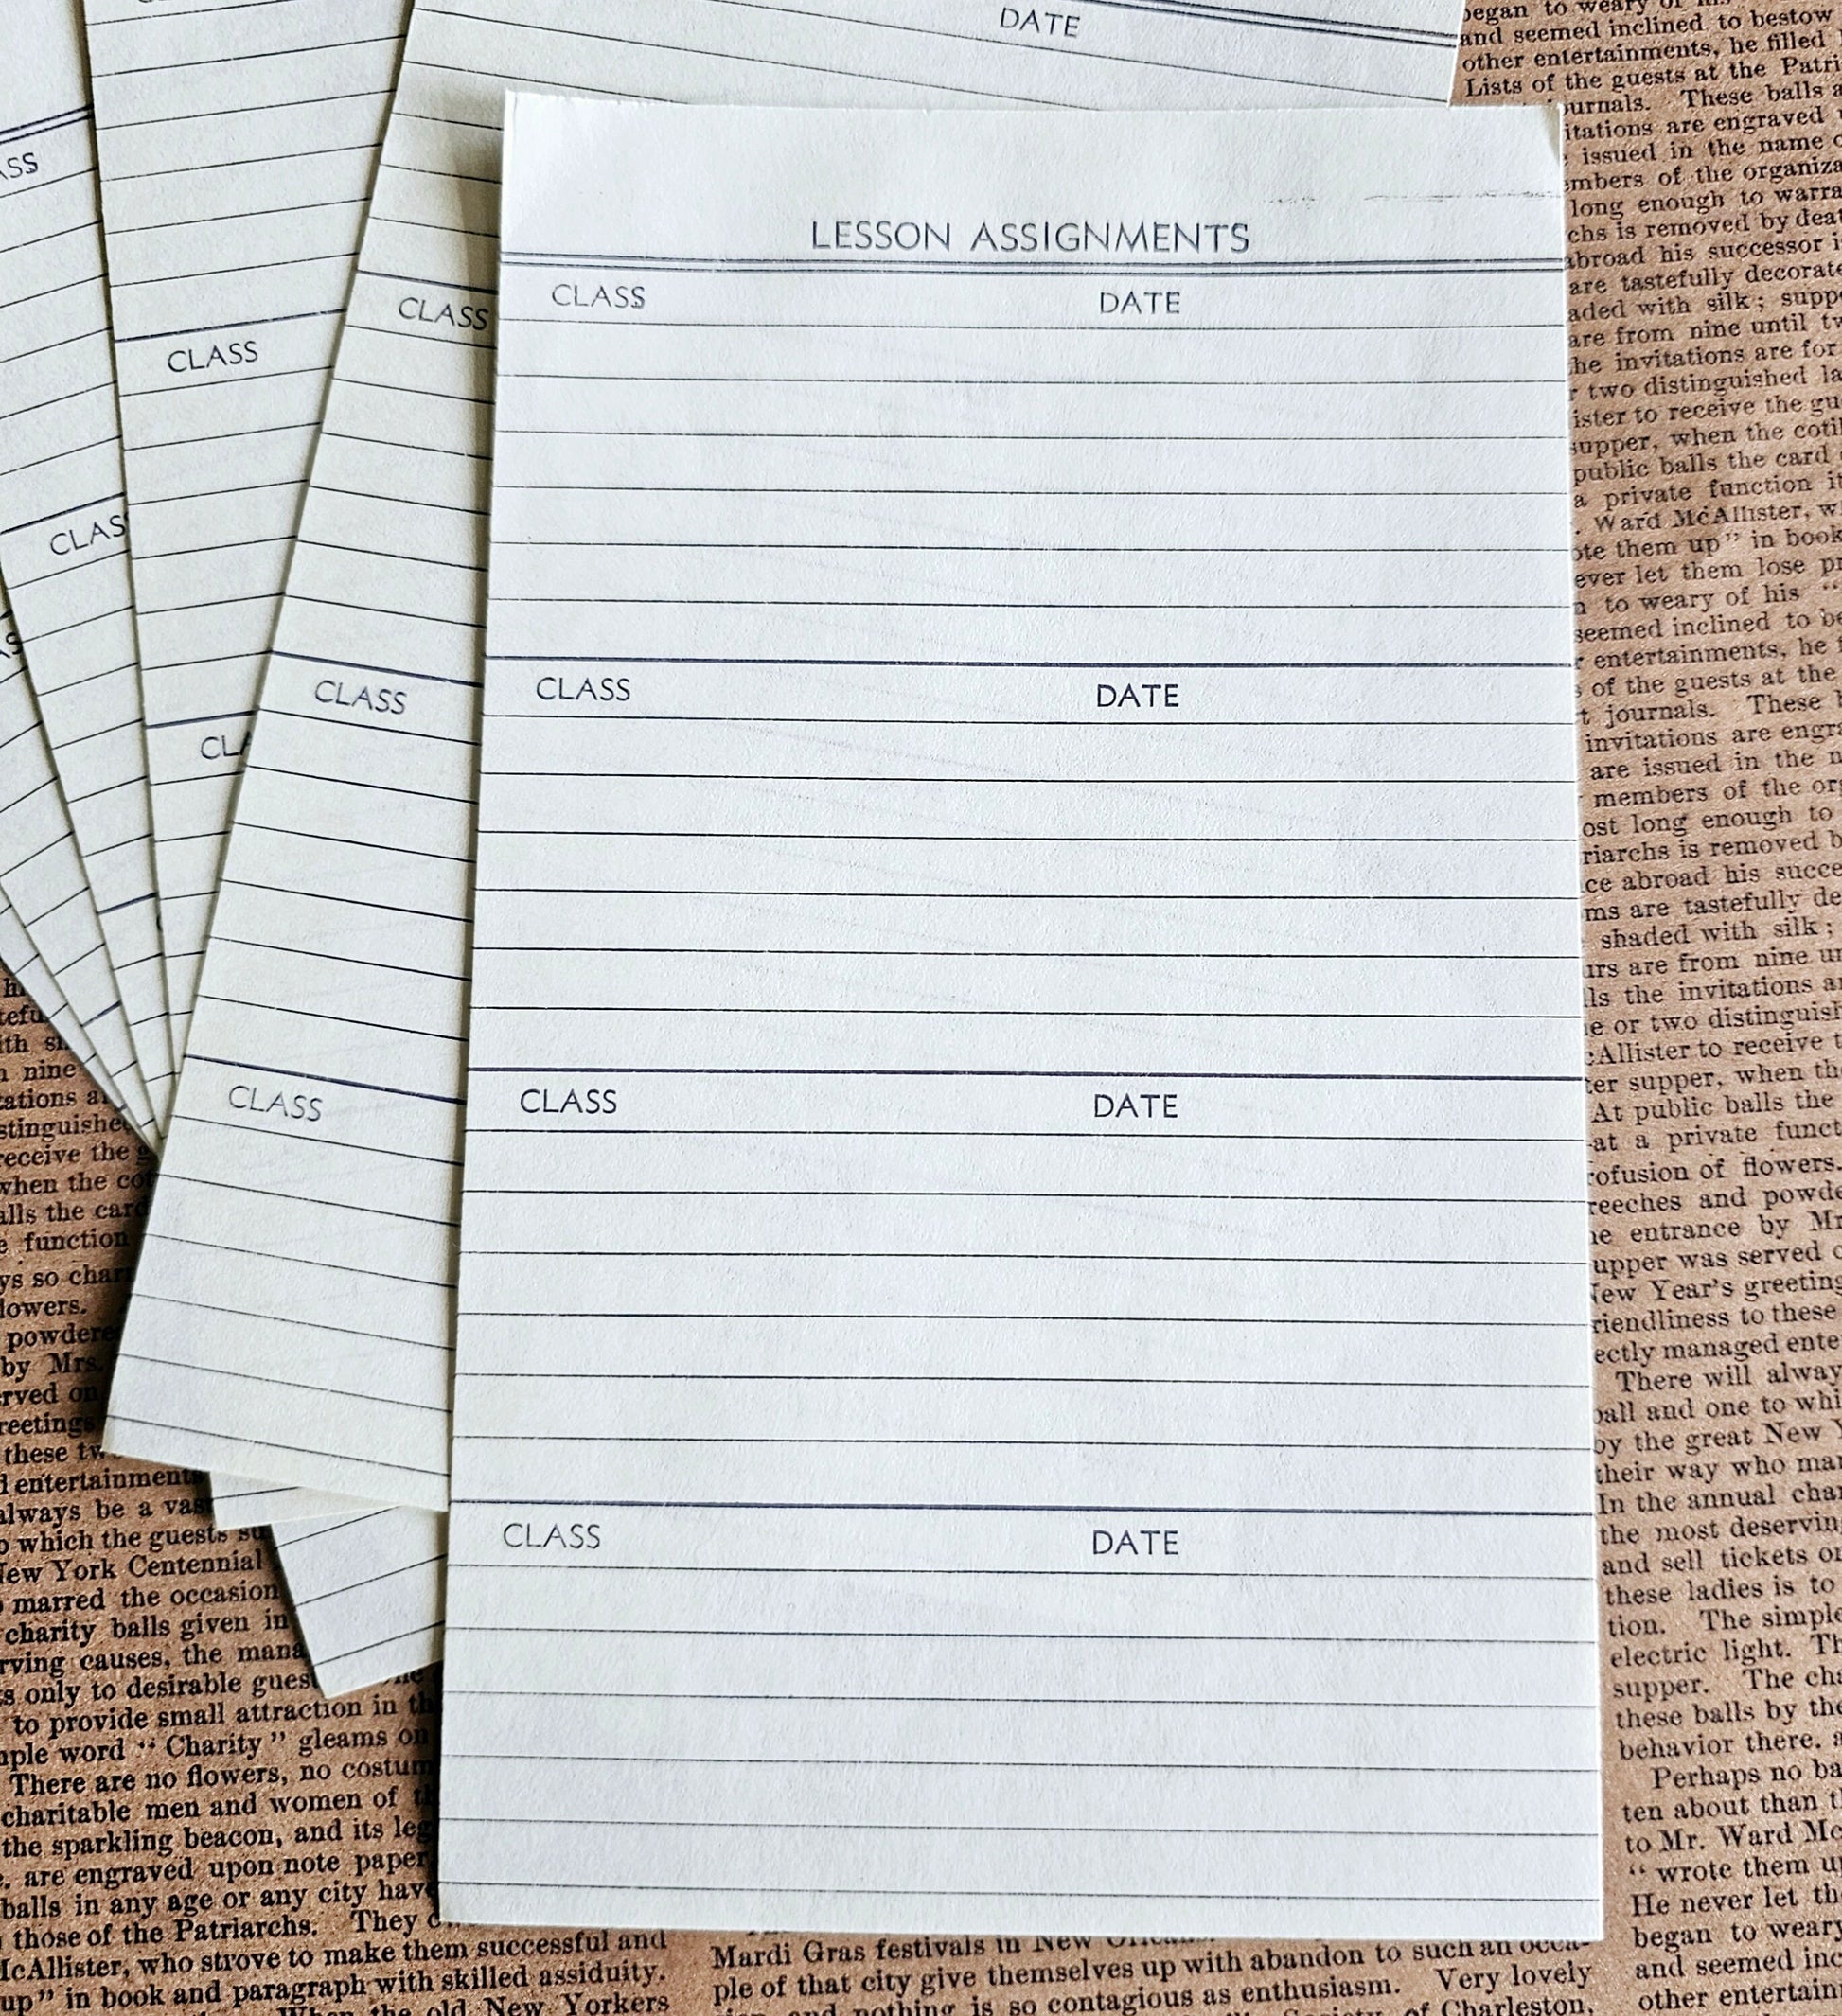 DATE
ASS
CLASS
CLASS
CLAS
CLASS
CLA
CLASS
LESSON ASSIGNMENTS
CLASS DATE
CLASS DATE
CLASS DATE
CLASS DATE
began to weary of
and seemed inclined to bestow
other entertainments, he filled
Lists of the guests at the Patri
ournals. These balls a
itations are engraved
issued in the name o
mbers of the organiza
long enough to warra
chs is removed by deat
abroad his successor i
are tastefully decorate
aded with silk; supp
are from nine until tw
he invitations are for
two distinguished la
ister to receive the gu
supper, when the cotil
public balls the card
a private function it
. Ward McAllister, w
ote them up" in book
ever let them lose pr
n to weary of his "
seemed inclined to be
r entertainments, he
s of the guests at the
t journals. These
invitations are engra
are issued in the n
members of the org
ost long enough to
riarchs is removed b
ce abroad his succe
ms are tastefully de
shaded with silk;
urs are from nine un
ls the invitations a
e or two distinguish
cAllister to receive t
ter supper, when the
At public balls the
at a private funct
rofusion of flowers.
reeches and powde
he entrance by Mr
upper was served o
New Year's greeting
riendliness to these
ectly managed ente
There will alway
ball and one to whi
by the great New Y
their way who mar
In the annual char
the most deservin
and sell tickets or
these ladies is to
tion. The simple
electric light. Th
supper. The cha
these balls by the
behavior there. a
Perhaps no ba
ten about than t
to Mr. Ward Mc
" wrote them u
He never let th
began to weary
and seemed inc
other entertain
th s
n nine
tations a
stinguishe
receive the g
when the cot
alls the card
e function
ys so char
lowers.
powdere
by Mrs.
erved on
reetings
these tw
d entertainments
always be a vas
o which the guests su
New York Centennial
marred the occasion
charity balls given in
rving causes, the mana
s only to desirable gues
to provide small attraction in th
mple word " Charity " gleams on
There are no flowers, no costum
charitable men and women of t
the sparkling beacon, and its leg
. are engraved upon note paper
balls in any age or any city have
those of the Patriarchs. They
McAllister, who strove to make them successful and
up" in book and paragraph with skilled assiduity.
When the old New Yorkers
Mardi Gras festivals in New Orleans
ple of that city give themselves up with abandon to such an occa-
sion, and nothing is so contagious as enthusiasm. Very lovely
of Charleston,